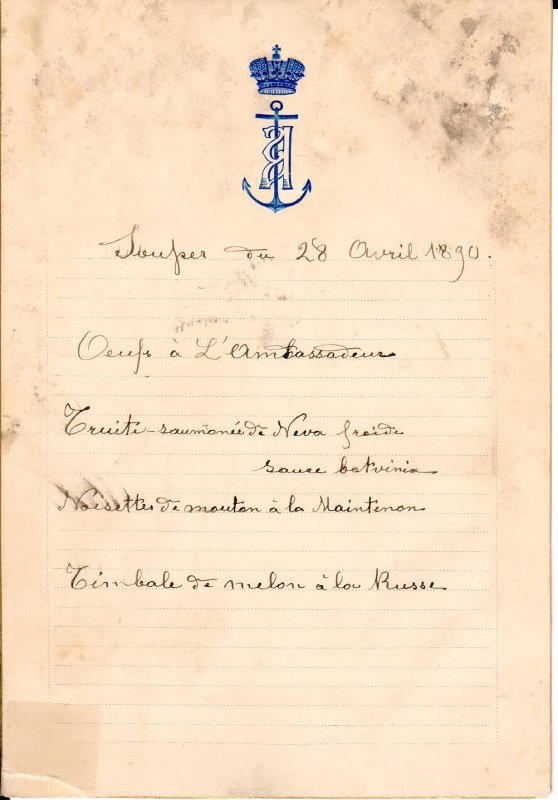 A
Souper du 28 Avril 1890.
Oeufs à L'Ambassadeur
Truite-saumonée de Neva froide
sauce botvinia
Noisettes de mouton à la Maintenon
Timbale de melon à la Russe